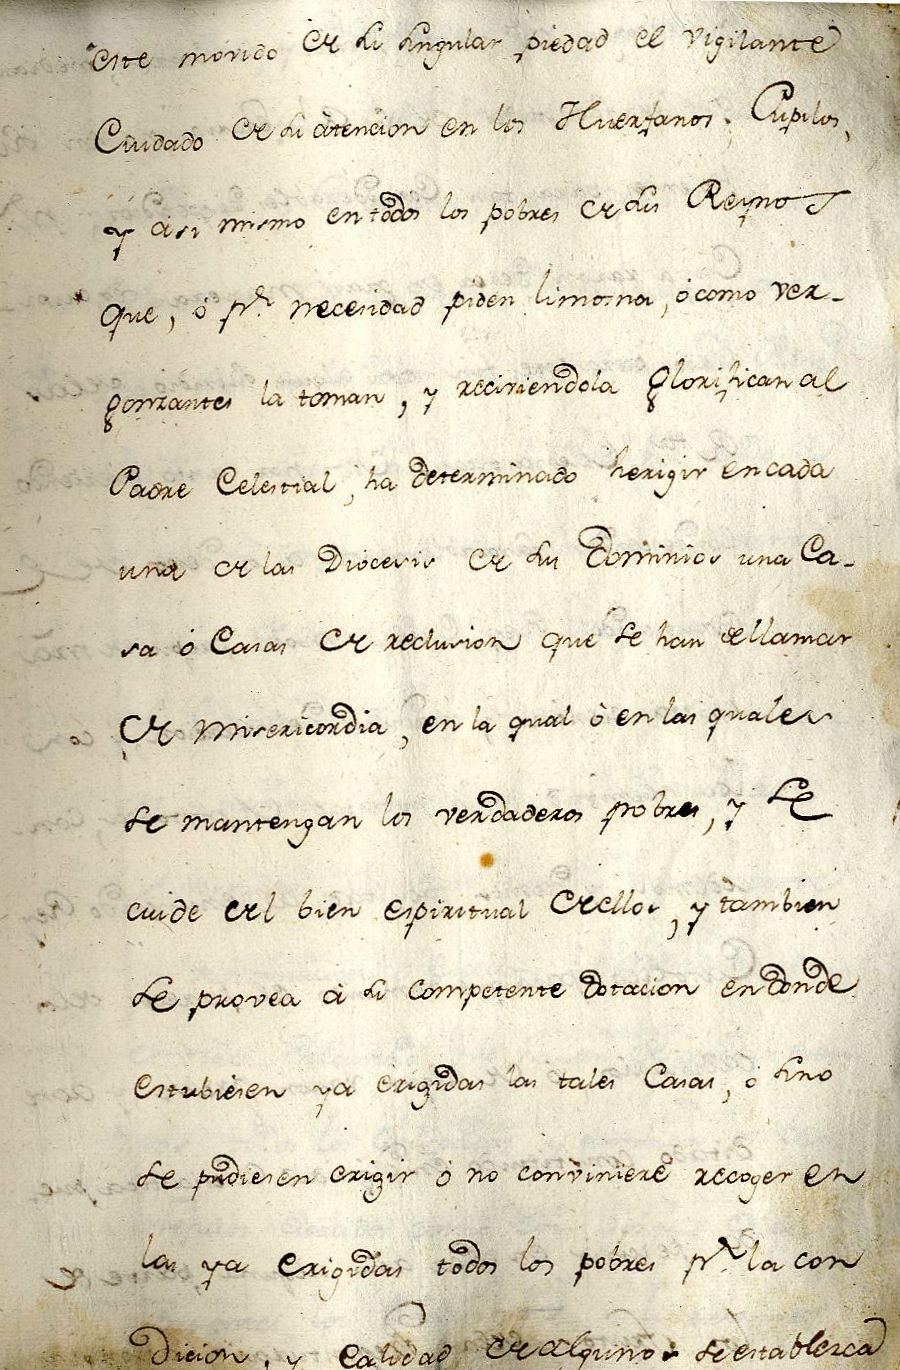 este movido de su singular piedad el vigilante
Cuidado de su atencion en los Huerfanos, Pupilos,
y asi mismo en todos los pobres de sus Reynos
que, ó pr. necesidad piden limosna, ó como ver-
gonzantes la toman, y reciviendola glorifican al
Padre Celestial, ha determinado herigir en cada
una de las Diocesis de sus Dominios una Ca-
sa ó Casas de reclusion que se han de llamar
de Misericordia, en la qual ó en las quales
se mantengan los verdaderos pobres, y se
cuide del bien espiritual de ellos, y tambien
se provea á su competente dotacion en donde
estubiesen ya erigidas las tales Casas, ó sino
se pudiesen erigir ó no conviniere recoger en
las ya erigidas todos los pobres pr. la con
dicion, y calidad de alguno se establezca